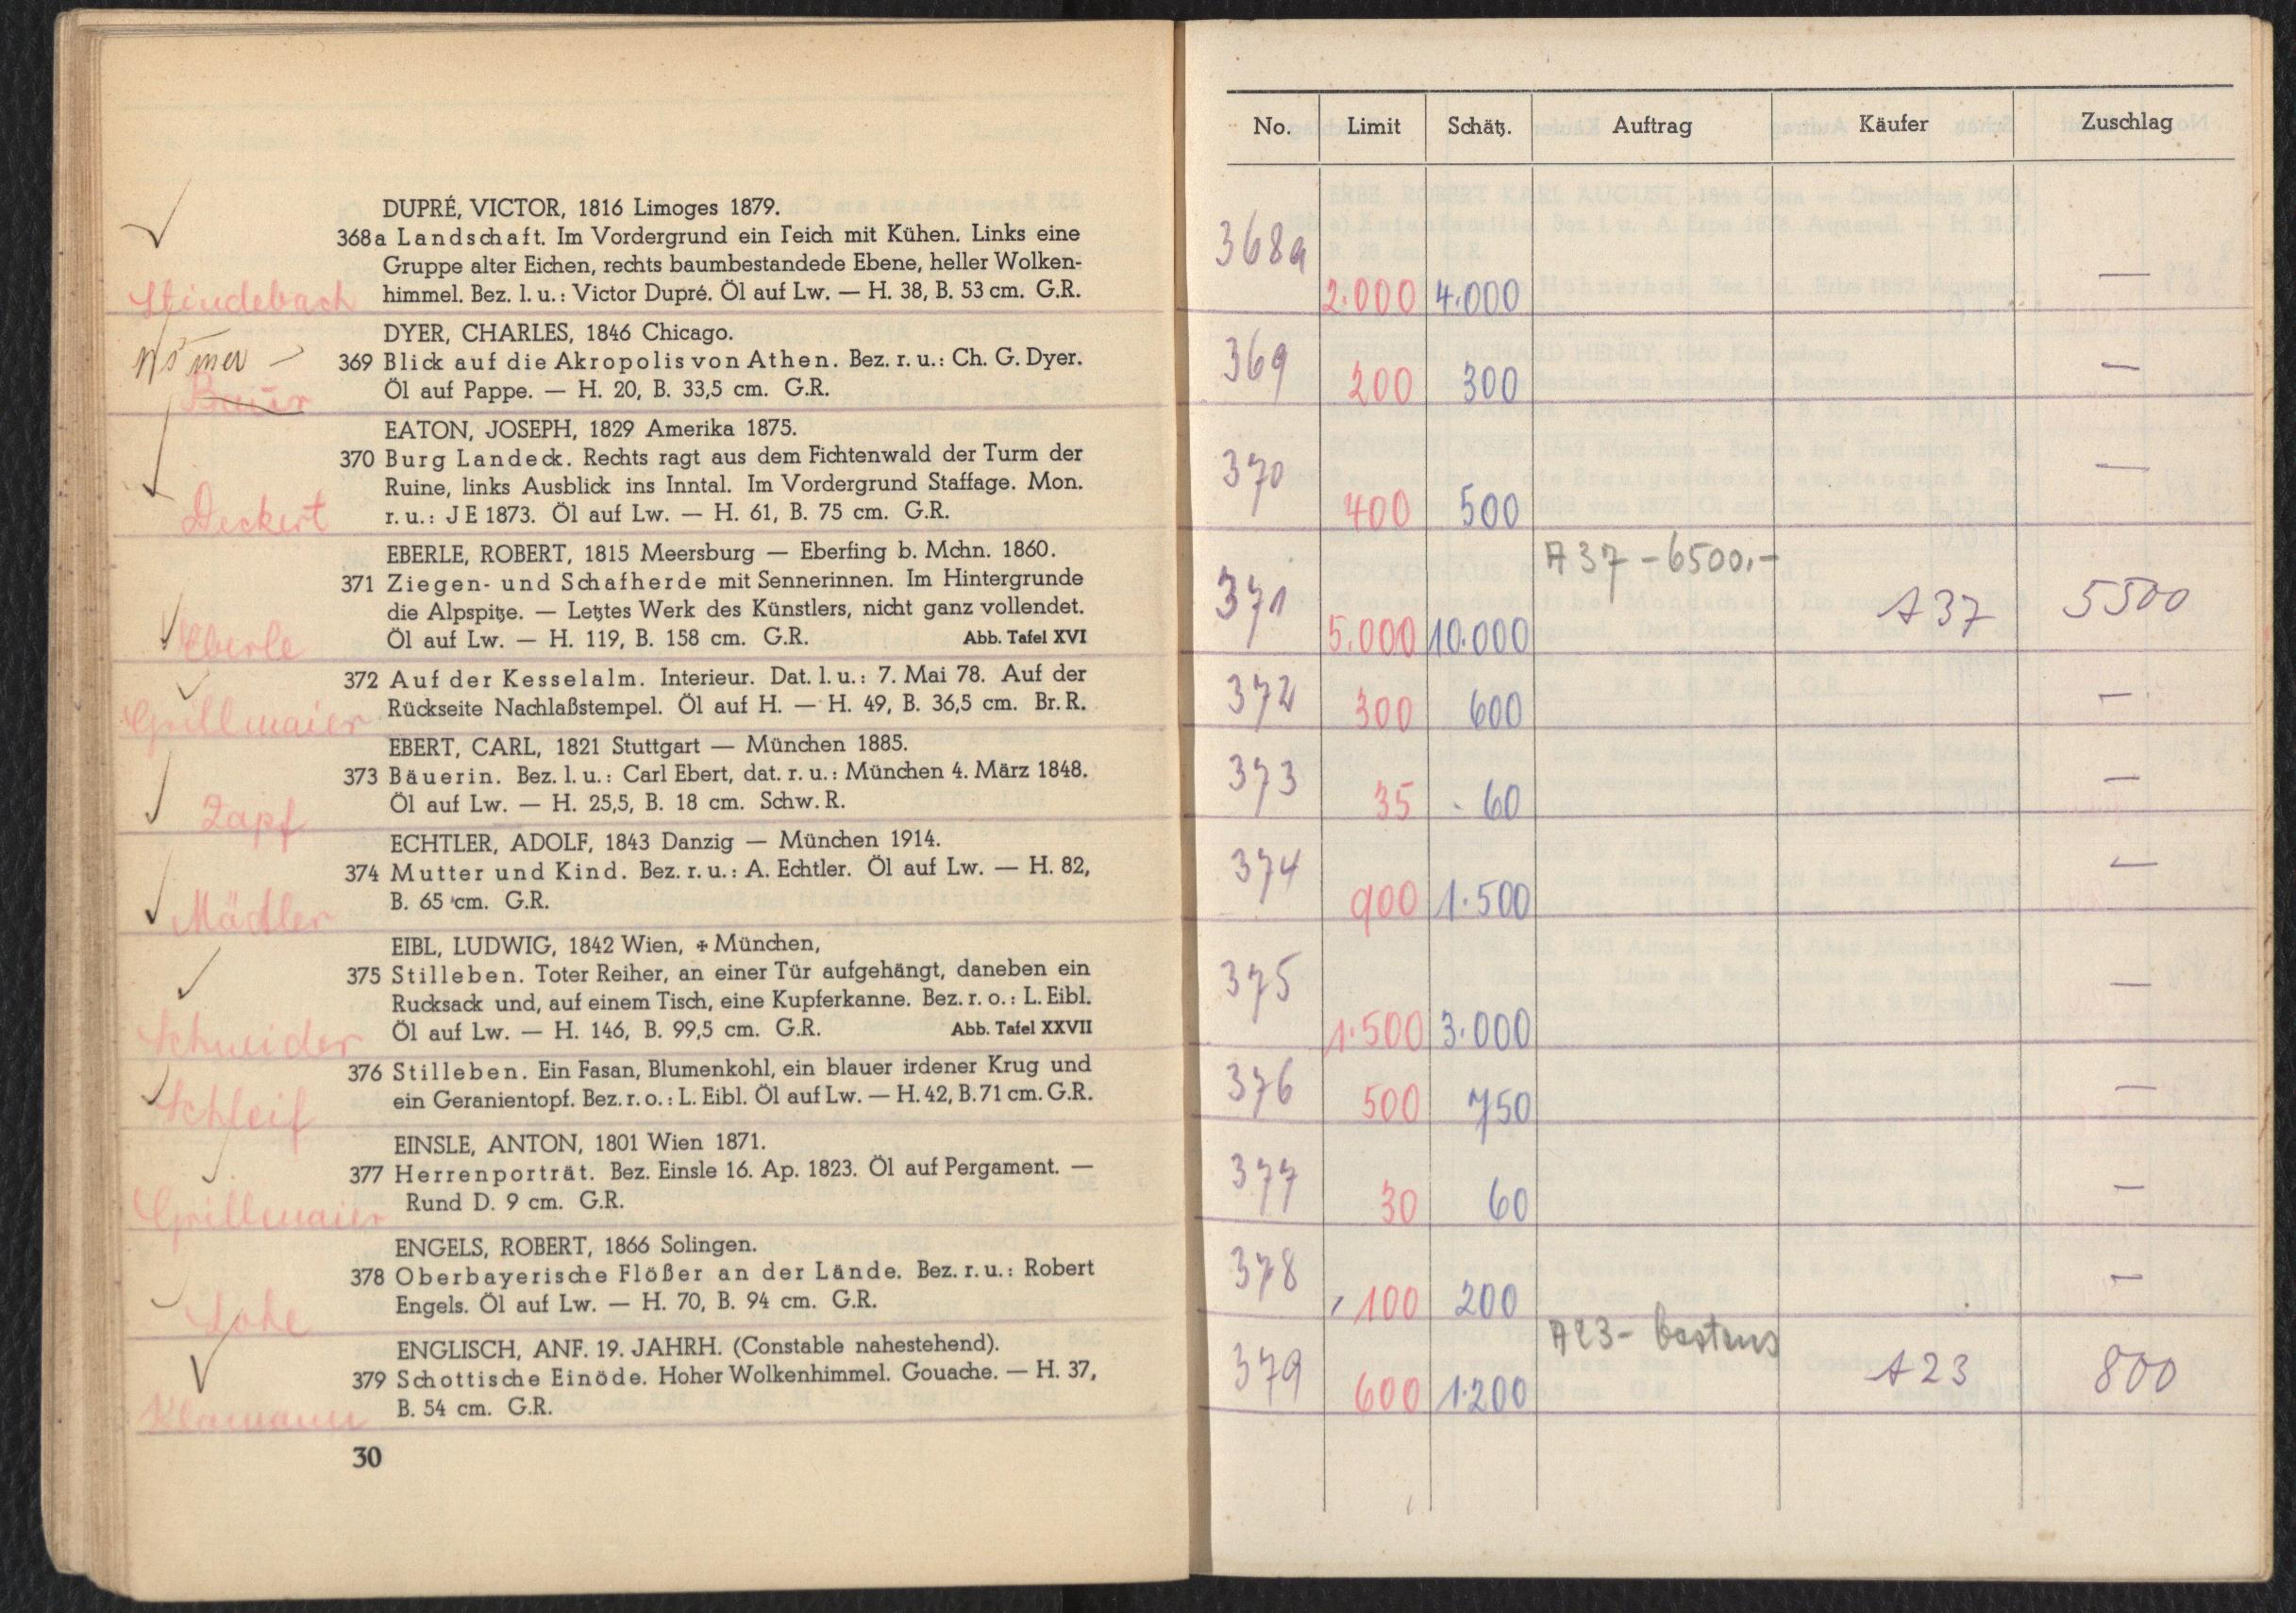 DUPRÉ, VICTOR, 1816 Limoges 1879.
368a Landschaft. Im Vordergrund ein Teich mit Kühen. Links eine
Gruppe alter Eichen, rechts baumbestandede Ebene, heller Wolken-
himmel. Bez. l. u.: Victor Dupré. Öl auf Lw. — H. 38, B. 53 cm. G.R.
Stindebach
DYER, CHARLES, 1846 Chicago.
369 Blick auf die Akropolis von Athen. Bez. r. u.: Ch. G. Dyer.
Öl auf Pappe. — H. 20, B. 33,5 cm. G.R.
EATON, JOSEPH, 1829 Amerika 1875.
370 Burg Landeck. Rechts ragt aus dem Fichtenwald der Turm der
Ruine, links Ausblick ins Inntal. Im Vordergrund Staffage. Mon.
r. u.: J E 1873. Öl auf Lw. — H. 61, B. 75 cm. G.R.
Deckert
EBERLE, ROBERT, 1815 Meersburg — Eberfing b. Mchn. 1860.
371 Ziegen- und Schafherde mit Sennerinnen. Im Hintergrunde
die Alpspitze. — Letztes Werk des Künstlers, nicht ganz vollendet.
Öl auf Lw. — H. 119, B. 158 cm. G.R. Abb. Tafel XVI
Eberle
372 Auf der Kesselalm. Interieur. Dat. l. u.: 7. Mai 78. Auf der
Rückseite Nachlaßstempel. Öl auf H. — H. 49, B. 36,5 cm. Br. R.
Grillmaier
EBERT, CARL, 1821 Stuttgart — München 1885.
373 Bäuerin. Bez. l. u.: Carl Ebert, dat. r. u.: München 4. März 1848.
Öl auf Lw. — H. 25,5, B. 18 cm. Schw. R.
Zapf
ECHTLER, ADOLF, 1843 Danzig — München 1914.
374 Mutter und Kind. Bez. r. u.: A. Echtler. Öl auf Lw. — H. 82,
B. 65 cm. G.R.
Mädler
EIBL, LUDWIG, 1842 Wien, ✠ München,
375 Stilleben. Toter Reiher, an einer Tür aufgehängt, daneben ein
Rucksack und, auf einem Tisch, eine Kupferkanne. Bez. r. o.: L. Eibl.
Öl auf Lw. — H. 146, B. 99,5 cm. G.R. Abb. Tafel XXVII
Schneider
376 Stilleben. Ein Fasan, Blumenkohl, ein blauer irdener Krug und
ein Geranientopf. Bez. r. o.: L. Eibl. Öl auf Lw. — H. 42, B. 71 cm. G.R.
Schleif
EINSLE, ANTON, 1801 Wien 1871.
377 Herrenporträt. Bez. Einsle 16. Ap. 1823. Öl auf Pergament. —
Rund D. 9 cm. G.R.
Grillmaier
ENGELS, ROBERT, 1866 Solingen.
378 Oberbayerische Flößer an der Lände. Bez. r. u.: Robert
Engels. Öl auf Lw. — H. 70, B. 94 cm. G.R.
Lohe
ENGLISCH, ANF. 19. JAHRH. (Constable nahestehend).
379 Schottische Einöde. Hoher Wolkenhimmel. Gouache. — H. 37,
B. 54 cm. G.R.
Klamann
30
No. Limit Schätz. Auftrag Käufer Zuschlag
368a 2.000 4.000 —
369 200 300 —
370 400 500 —
A 37 - 6500.-
371 5.000 10.000 A 37 5500
372 300 600 —
373 35 60 —
374 900 1.500 —
375 1.500 3.000 —
376 500 750 —
377 30 60 —
378 100 200 —
A23 - bestens
379 600 1.200 A 23 800